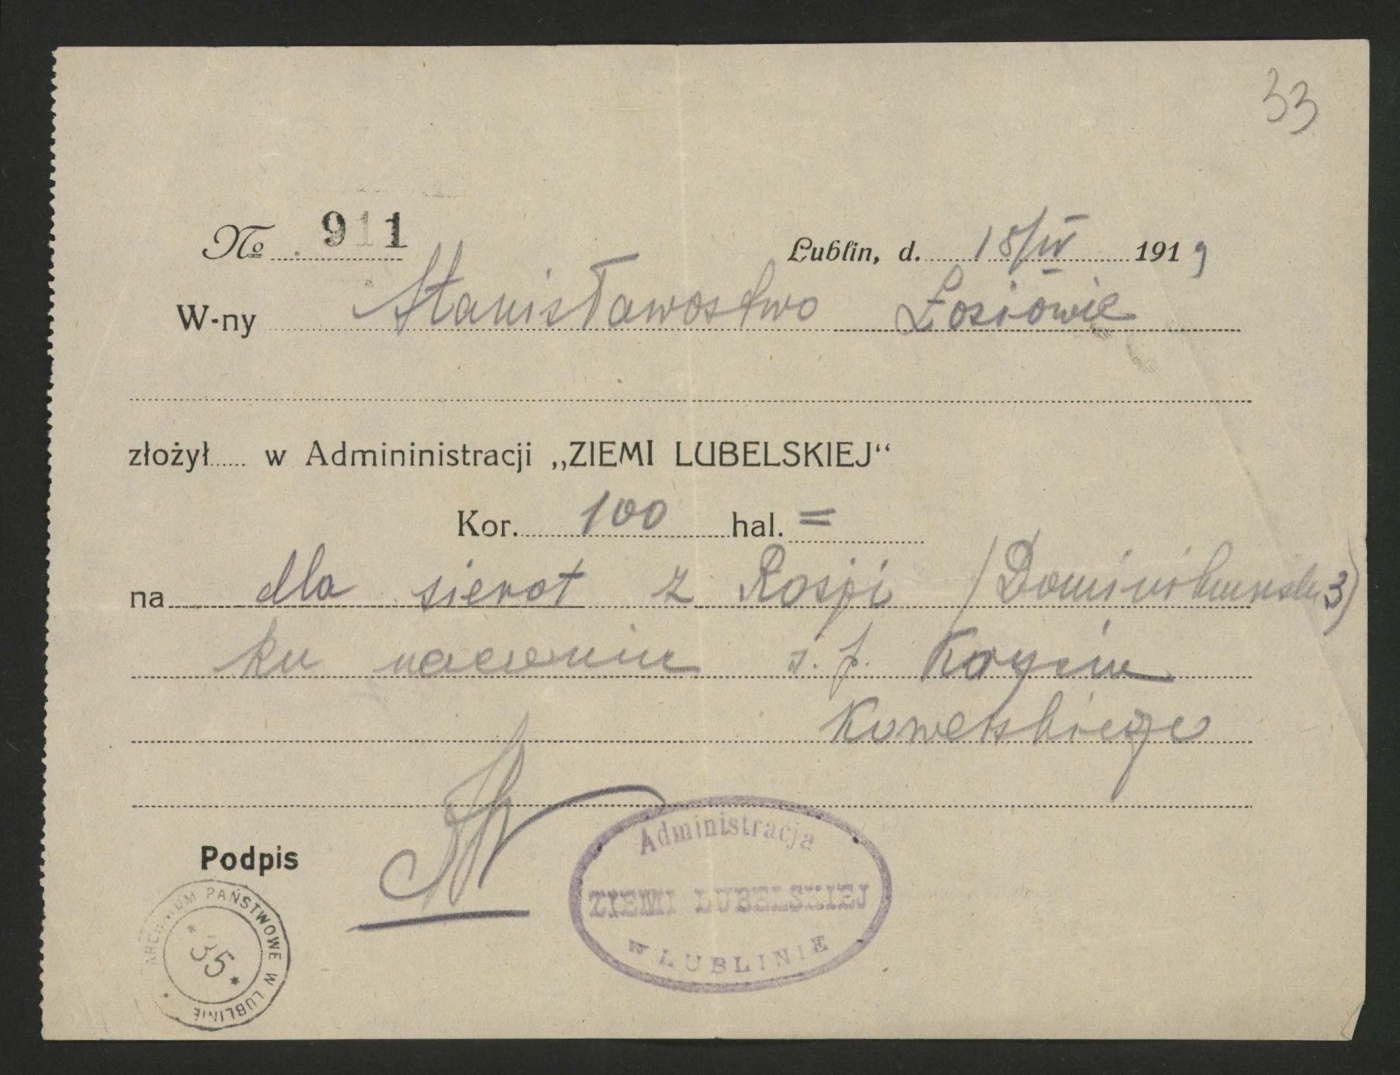 33
№ 911 Lublin, d. 18/IV 1919
W-ny Stanisławostwo Łosiowie
złożył w Admininistracji „ZIEMI LUBELSKIEJ“
Kor. 100 hal. =
na dla sierot z Rosji (3)
ku uczczeniu ś. p.
Kowerskiego
Podpis
Administracja
ZIEMI LUBELSKIEJ
W LUBLINIE
ARCHIWUM PAŃSTWOWE W LUBLINIE
* 35 *